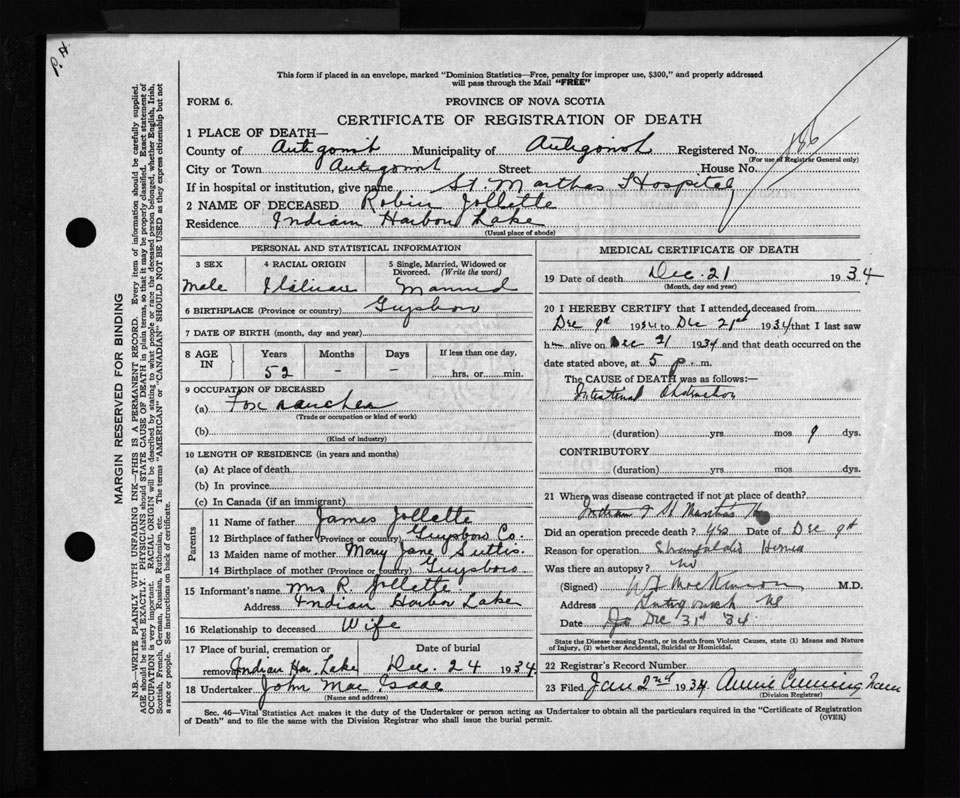 P. H.
This form if placed in an envelope, marked "Dominion Statistics—Free, penalty for improper use, $300," and properly addressed
will pass through the Mail "FREE"
FORM 6. PROVINCE OF NOVA SCOTIA
CERTIFICATE OF REGISTRATION OF DEATH
1 PLACE OF DEATH—
County of Antigonish Municipality of Antigonish Registered No. 186
(For use of Registrar General only)
City or Town Antigonish Street House No.
If in hospital or institution, give name St. Marthas Hospital
2 NAME OF DECEASED Robin Jollette
Residence Indian Harbor Lake
(Usual place of abode)
PERSONAL AND STATISTICAL INFORMATION
3 SEX 4 RACIAL ORIGIN 5 Single, Married, Widowed or Divorced. (Write the word)
Male Married
6 BIRTHPLACE (Province or country) Guysboro
7 DATE OF BIRTH (month, day and year)
8 AGE IN Years Months Days If less than one day,
52 – – hrs. or min.
9 OCCUPATION OF DECEASED
(a) Fox rancher
(Trade or occupation or kind of work)
(b)
(Kind of industry)
10 LENGTH OF RESIDENCE (in years and months)
(a) At place of death
(b) In province
(c) In Canada (if an immigrant)
Parents
11 Name of father James Jollette
12 Birthplace of father (Province or country) Guysboro Co.
13 Maiden name of mother Mary Jane Suttis.
14 Birthplace of mother (Province or country) Guysboro.
15 Informant's name Mrs R. Jollette
Address Indian Harbor Lake
16 Relationship to deceased Wife
17 Place of burial, cremation or removal Indian Har. Lake Date of burial Dec. 24 1934.
18 Undertaker John Mac Isaac
(Name and address)
MEDICAL CERTIFICATE OF DEATH
19 Date of death Dec. 21 1934
(Month, day and year)
20 I HEREBY CERTIFY that I attended deceased from
Dec 9th 1934 to Dec 21st 1934 that I last saw
him alive on Dec 21 1934 and that death occurred on the
date stated above, at 5 p. m.
The CAUSE of DEATH was as follows:—
Intestinal Obstruction
(duration) yrs. mos 9 dys.
CONTRIBUTORY
(duration) yrs. mos. dys.
21 Where was disease contracted if not at place of death?
Did an operation precede death? Yes Date of Dec 9th
Reason for operation Strangulated Hernia
Was there an autopsy? No
(Signed) MacKinnon M.D.
Address Antigonish NS
Date Dec 31st '34
State the Disease causing Death, or in death from Violent Causes, state (1) Means and Nature
of Injury, (2) whether Accidental, Suicidal or Homicidal.
22 Registrar's Record Number
23 Filed Jan 2nd 1934 Annie Cunningham
(Division Registrar)
Sec. 46—Vital Statistics Act makes it the duty of the Undertaker or person acting as Undertaker to obtain all the particulars required in the "Certificate of Registration
of Death" and to file the same with the Division Registrar who shall issue the burial permit. (OVER)
MARGIN RESERVED FOR BINDING
N.B.—WRITE PLAINLY WITH UNFADING INK—THIS IS A PERMANENT RECORD. Every item of information should be carefully supplied.
AGE should be stated EXACTLY. PHYSICIANS should STATE CAUSE OF DEATH in plain terms, so that it may be properly classified. Exact statement of
OCCUPATION is very important. RACIAL ORIGIN will be described by stating to what people or race the deceased person belonged, whether English, Irish,
Scottish, French, German, Russian, Ruthenian, etc. The terms "AMERICAN" or "CANADIAN" SHOULD NOT BE USED as they express citizenship but not
a race or people. See instructions on back of certificate.